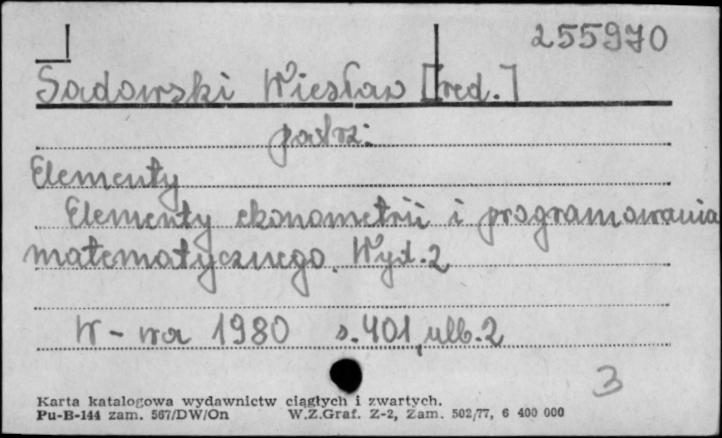 255970
Sadowski Wiesław [red.]
patrz:
Elementy
Elementy ekonometrii i programowania
matematycznego. Wyd. 2
W-wa 1980 s. 401, nlb. 2
3
Karta katalogowa wydawnictw ciągłych i zwartych.
Pu-B-144 zam. 567/DW/On W.Z.Graf. Z-2, Zam. 502/77, 6 400 000